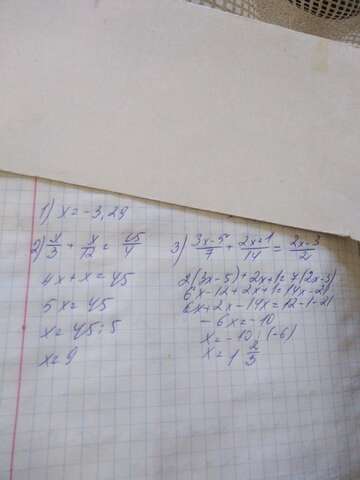 1) x = -3,29
2) x/3 + x/12 = 15/4
4x + x = 45
5x = 45
x = 45 : 5
x = 9
3) (3x-5)/7 + (2x+1)/14 = (2x-3)/2
2(3x-5) + 2x+1 = 7(2x-3)
6x - 12 + 2x + 1 = 14x - 21
6x + 2x - 14x = 12 - 1 - 21
-6x = -10
x = -10 : (-6)
x = 1 2/3